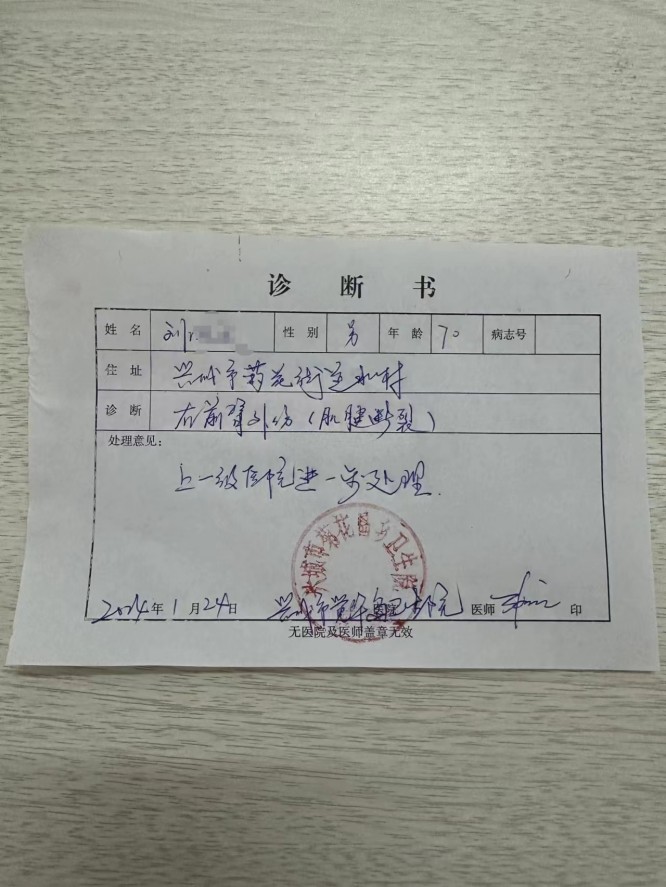 诊 断 书
姓 名 刘 性 别 男 年 龄 70 病志号
住 址 兴城市菊花街道 村
诊 断 右前臂外伤(肌腱断裂)
处理意见:
上一级医院进一步处理.
兴城市菊花岛乡卫生院
2024年1月24日 兴城市觉华岛卫生院 医师 印
无医院及医师盖章无效